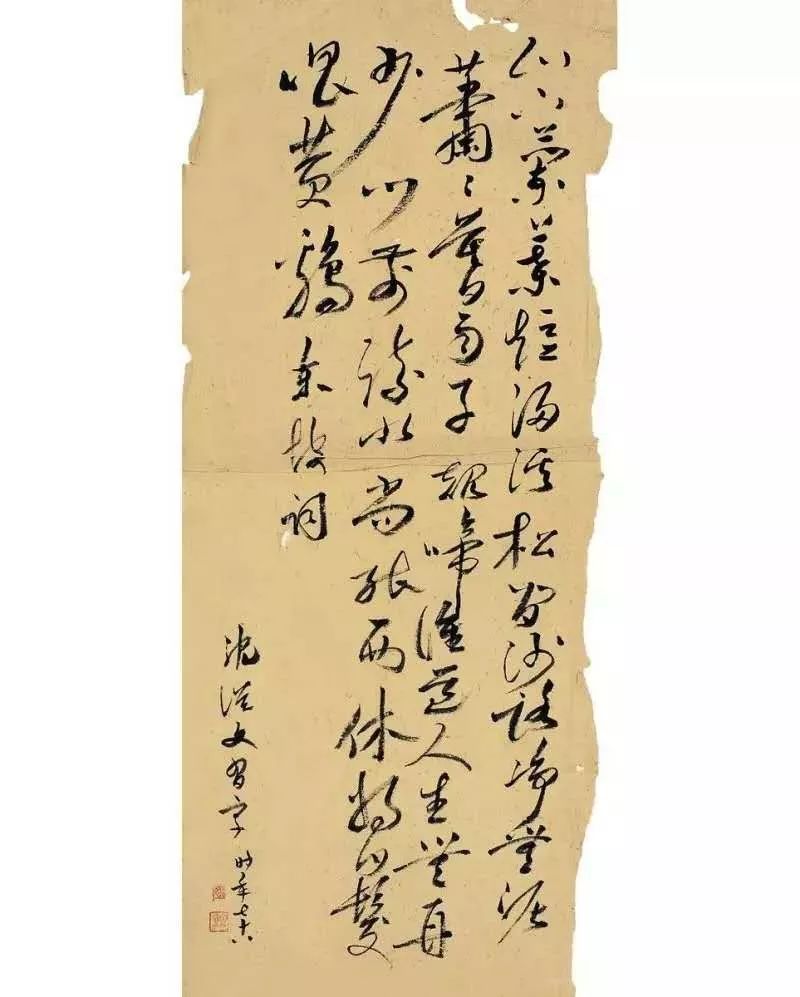 山下蘭葉短浸溪松間沙路淨無泥
蕭〻暮雨子規啼誰道人生無再
少門前流水尚能西休將白髮
唱黄鷄東坡詞
沈從文習字時年七十八